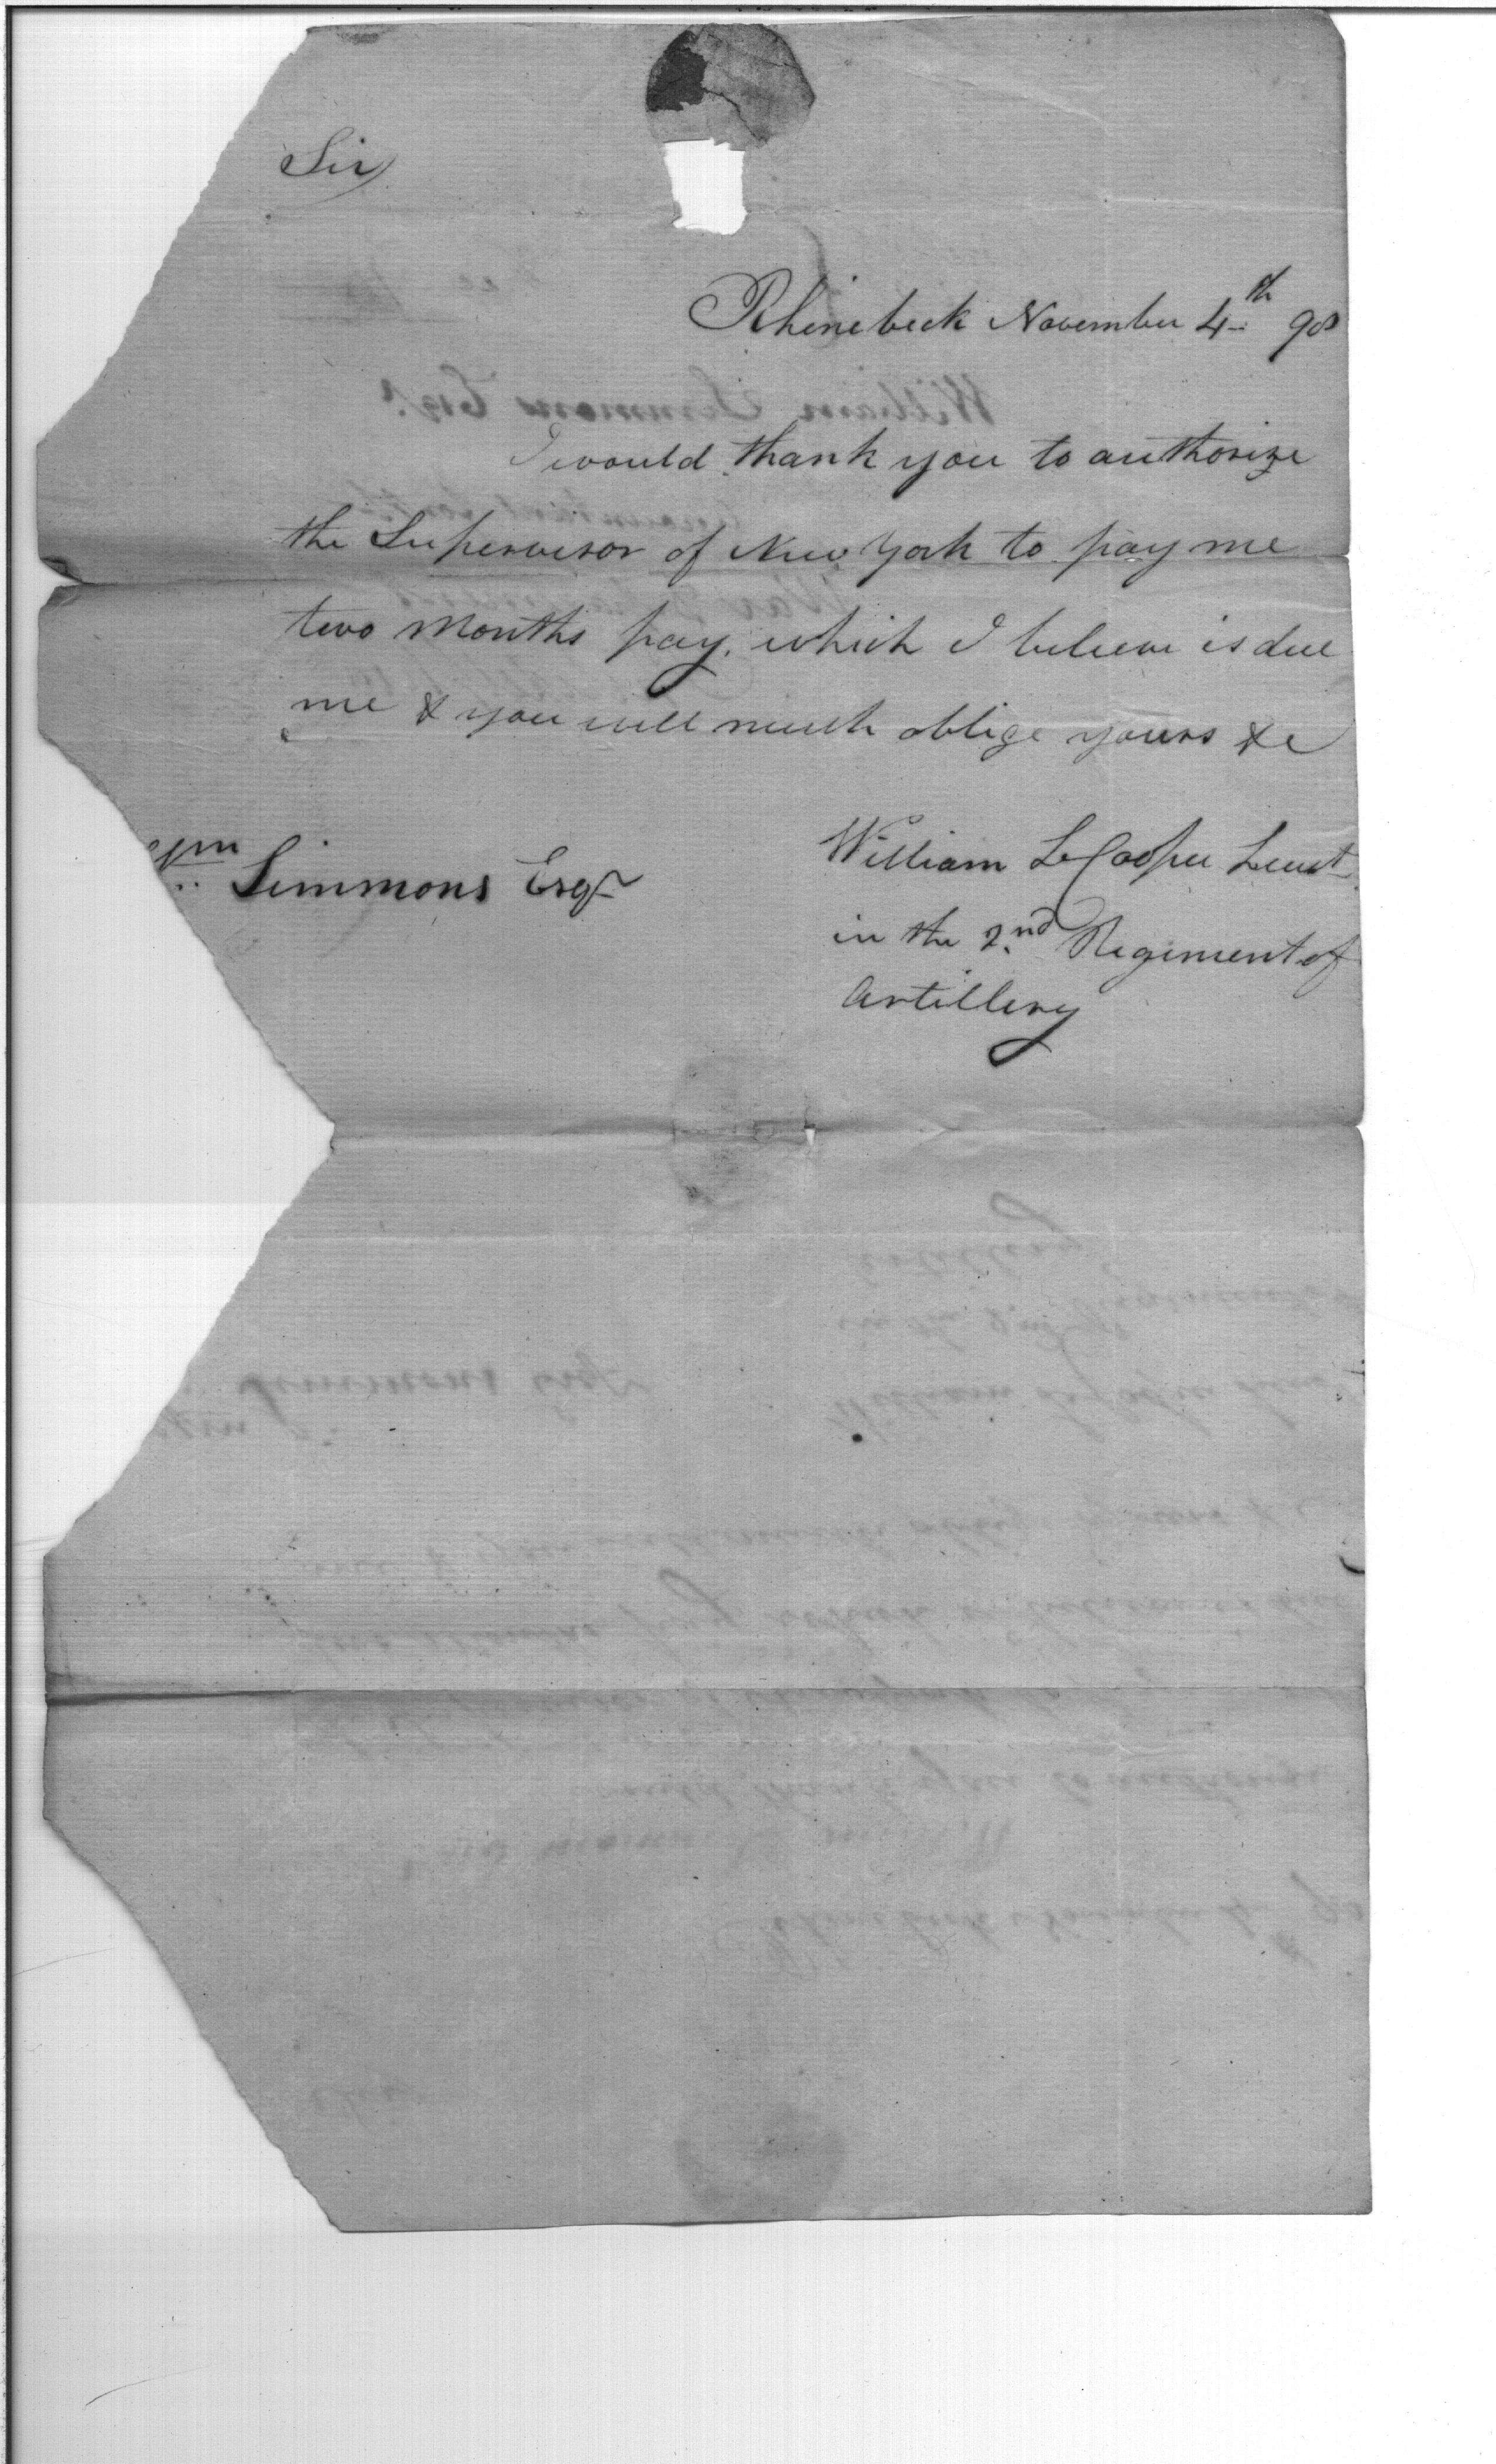 Sir
Rhinebeck November 4th 98
I would thank you to authorize
the Supervisor of New York to pay me
two Months pay, which I believe is due
me & you will much oblige yours &c
Wm Simmons Esqr
William L Cooper Leut
in the 2nd Regiment of
Artillery
William Simmons Esqr.